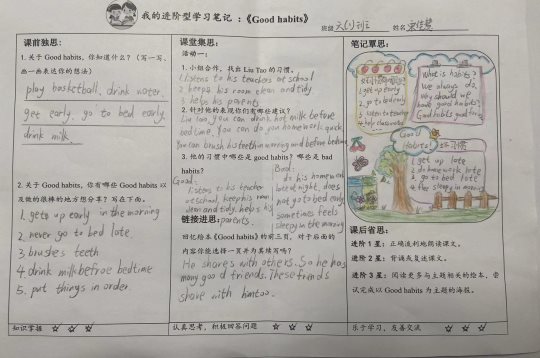 我的进阶型学习笔记:《Good habits》
班级 六(1)班 姓名
课前独思:
1. 关于 Good habits, 你知道什么?(写一写、
画一画表达你的想法)
play basketball, drink water.
get early. go to bed early
drink milk.
2. 关于 Good habits, 你有哪些 Good habits 以
及做的很棒的地方想分享?写在下面。
1. gets up early in the morning
2. never go to bed late
3. brushes teeth
4. drink milk befroe bedtime
5. put things in order.
知识掌握 ☆ ☆ ☆
课堂集思:
活动一:
1. 小组合作,找出 Liu Tao 的习惯。
1. listens to his teachers at school
2. keeps his room clean and tidy
3. helps his parents
2. 针对他的表现你们有哪些建议?
Liu Tao, you can drink hot milk before
bedtime. You can do your homework quick.
You can brush his teeth in morning and before bedtime
3. 他的习惯中哪些是 good habits? 哪些是 bad
habits?
Good:
listens to his teacher
at school, keep his room
clean and tidy. helps his
parents
Bad:
do his homework
late at night, does
not go to bed early
sometimes feels
sleepy in the morning
链接进思:
回忆绘本《Good habits》的前三页,对于后面的
内容你能选择一页并为其续写吗?
He shares with others. So he has
many good friends. These friends
share with him too.
认真思考,积极回答问题 ☆ ☆ ☆
笔记覃思:
1 get up early
2 go to bed early
3 listen to teacher
4 help classmates
What is habits?
We always do.
Why should we
have good habits?
Good habits good
Good
Habits!
坏习惯
1 get up late
2 do homework late
3 go to bed late
4 sleepy in morning
课后省思:
进阶 1 星:正确流利地朗读课文。
进阶 2 星:背诵或复述课文。
进阶 3 星:阅读更多与主题相关的绘本,尝
试完成以 Good habits 为主题的海报。
乐于学习,友善交流 ☆ ☆ ☆